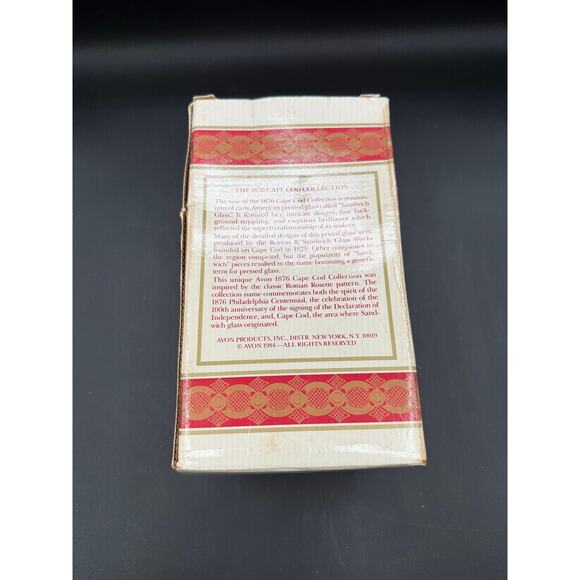 THE 1876 CAPE COD COLLECTION
The vase of the 1876 Cape Cod Collection is reminis-
cent of early American pressed glass called "Sandwich
Glass." It featured lacy, intricate designs, fine back-
ground stippling, and exquisite brilliance which
reflected the superb craftsmanship of its makers.
Many of the detailed designs of this prized glass were
produced by the Boston & Sandwich Glass Works
founded on Cape Cod in 1825. Other companies in
the region competed, but the popularity of "Sand-
wich" pieces resulted in the name becoming a generic
term for pressed glass.
This unique Avon 1876 Cape Cod Collection was
inspired by the classic Roman Rosette pattern. The
collection name commemorates both the spirit of the
1876 Philadelphia Centennial, the celebration of the
100th anniversary of the signing of the Declaration of
Independence, and, Cape Cod, the area where Sand-
wich glass originated.
AVON PRODUCTS, INC., DISTR. NEW YORK, N.Y. 10019
© AVON 1984—ALL RIGHTS RESERVED